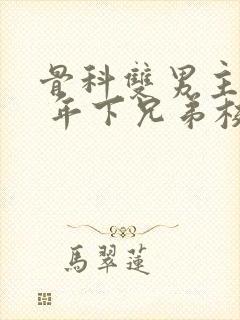 骨科雙男主
年下兄弟
馬翠蓮